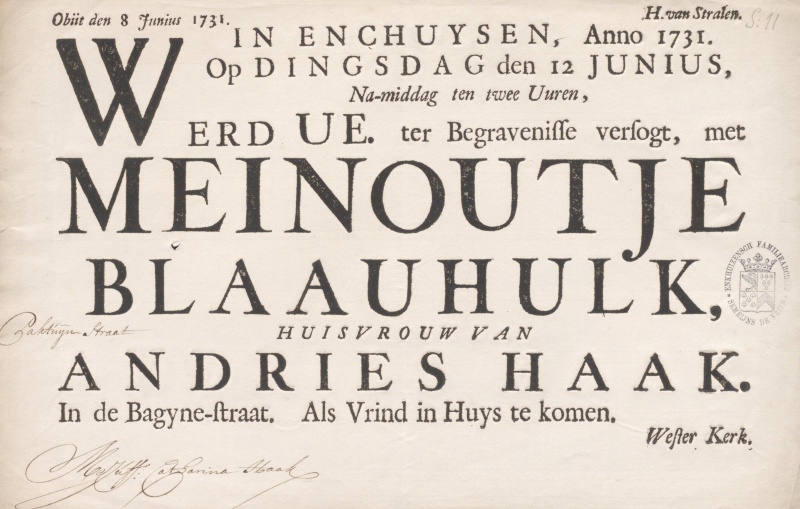 Obiit den 8 Junius 1731.
H. van Stralen.
S: 11
IN ENCHUYSEN, Anno 1731.
Op DINGSDAG den 12 JUNIUS,
Na-middag ten twee Uuren,
WERD UE. ter Begravenisse versogt, met
MEINOUTJE
BLAAUHULK,
HUISVROUW VAN
ANDRIES HAAK.
In de Bagyne-straat. Als Vrind in Huys te komen.
Wester Kerk.
Straat
Catharina Haak
ENKHUIZENSCH FAMILIEARCHIEF